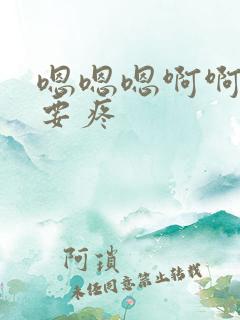 嗯嗯嗯啊啊
要疼
阿瑣
未经同意禁止转载